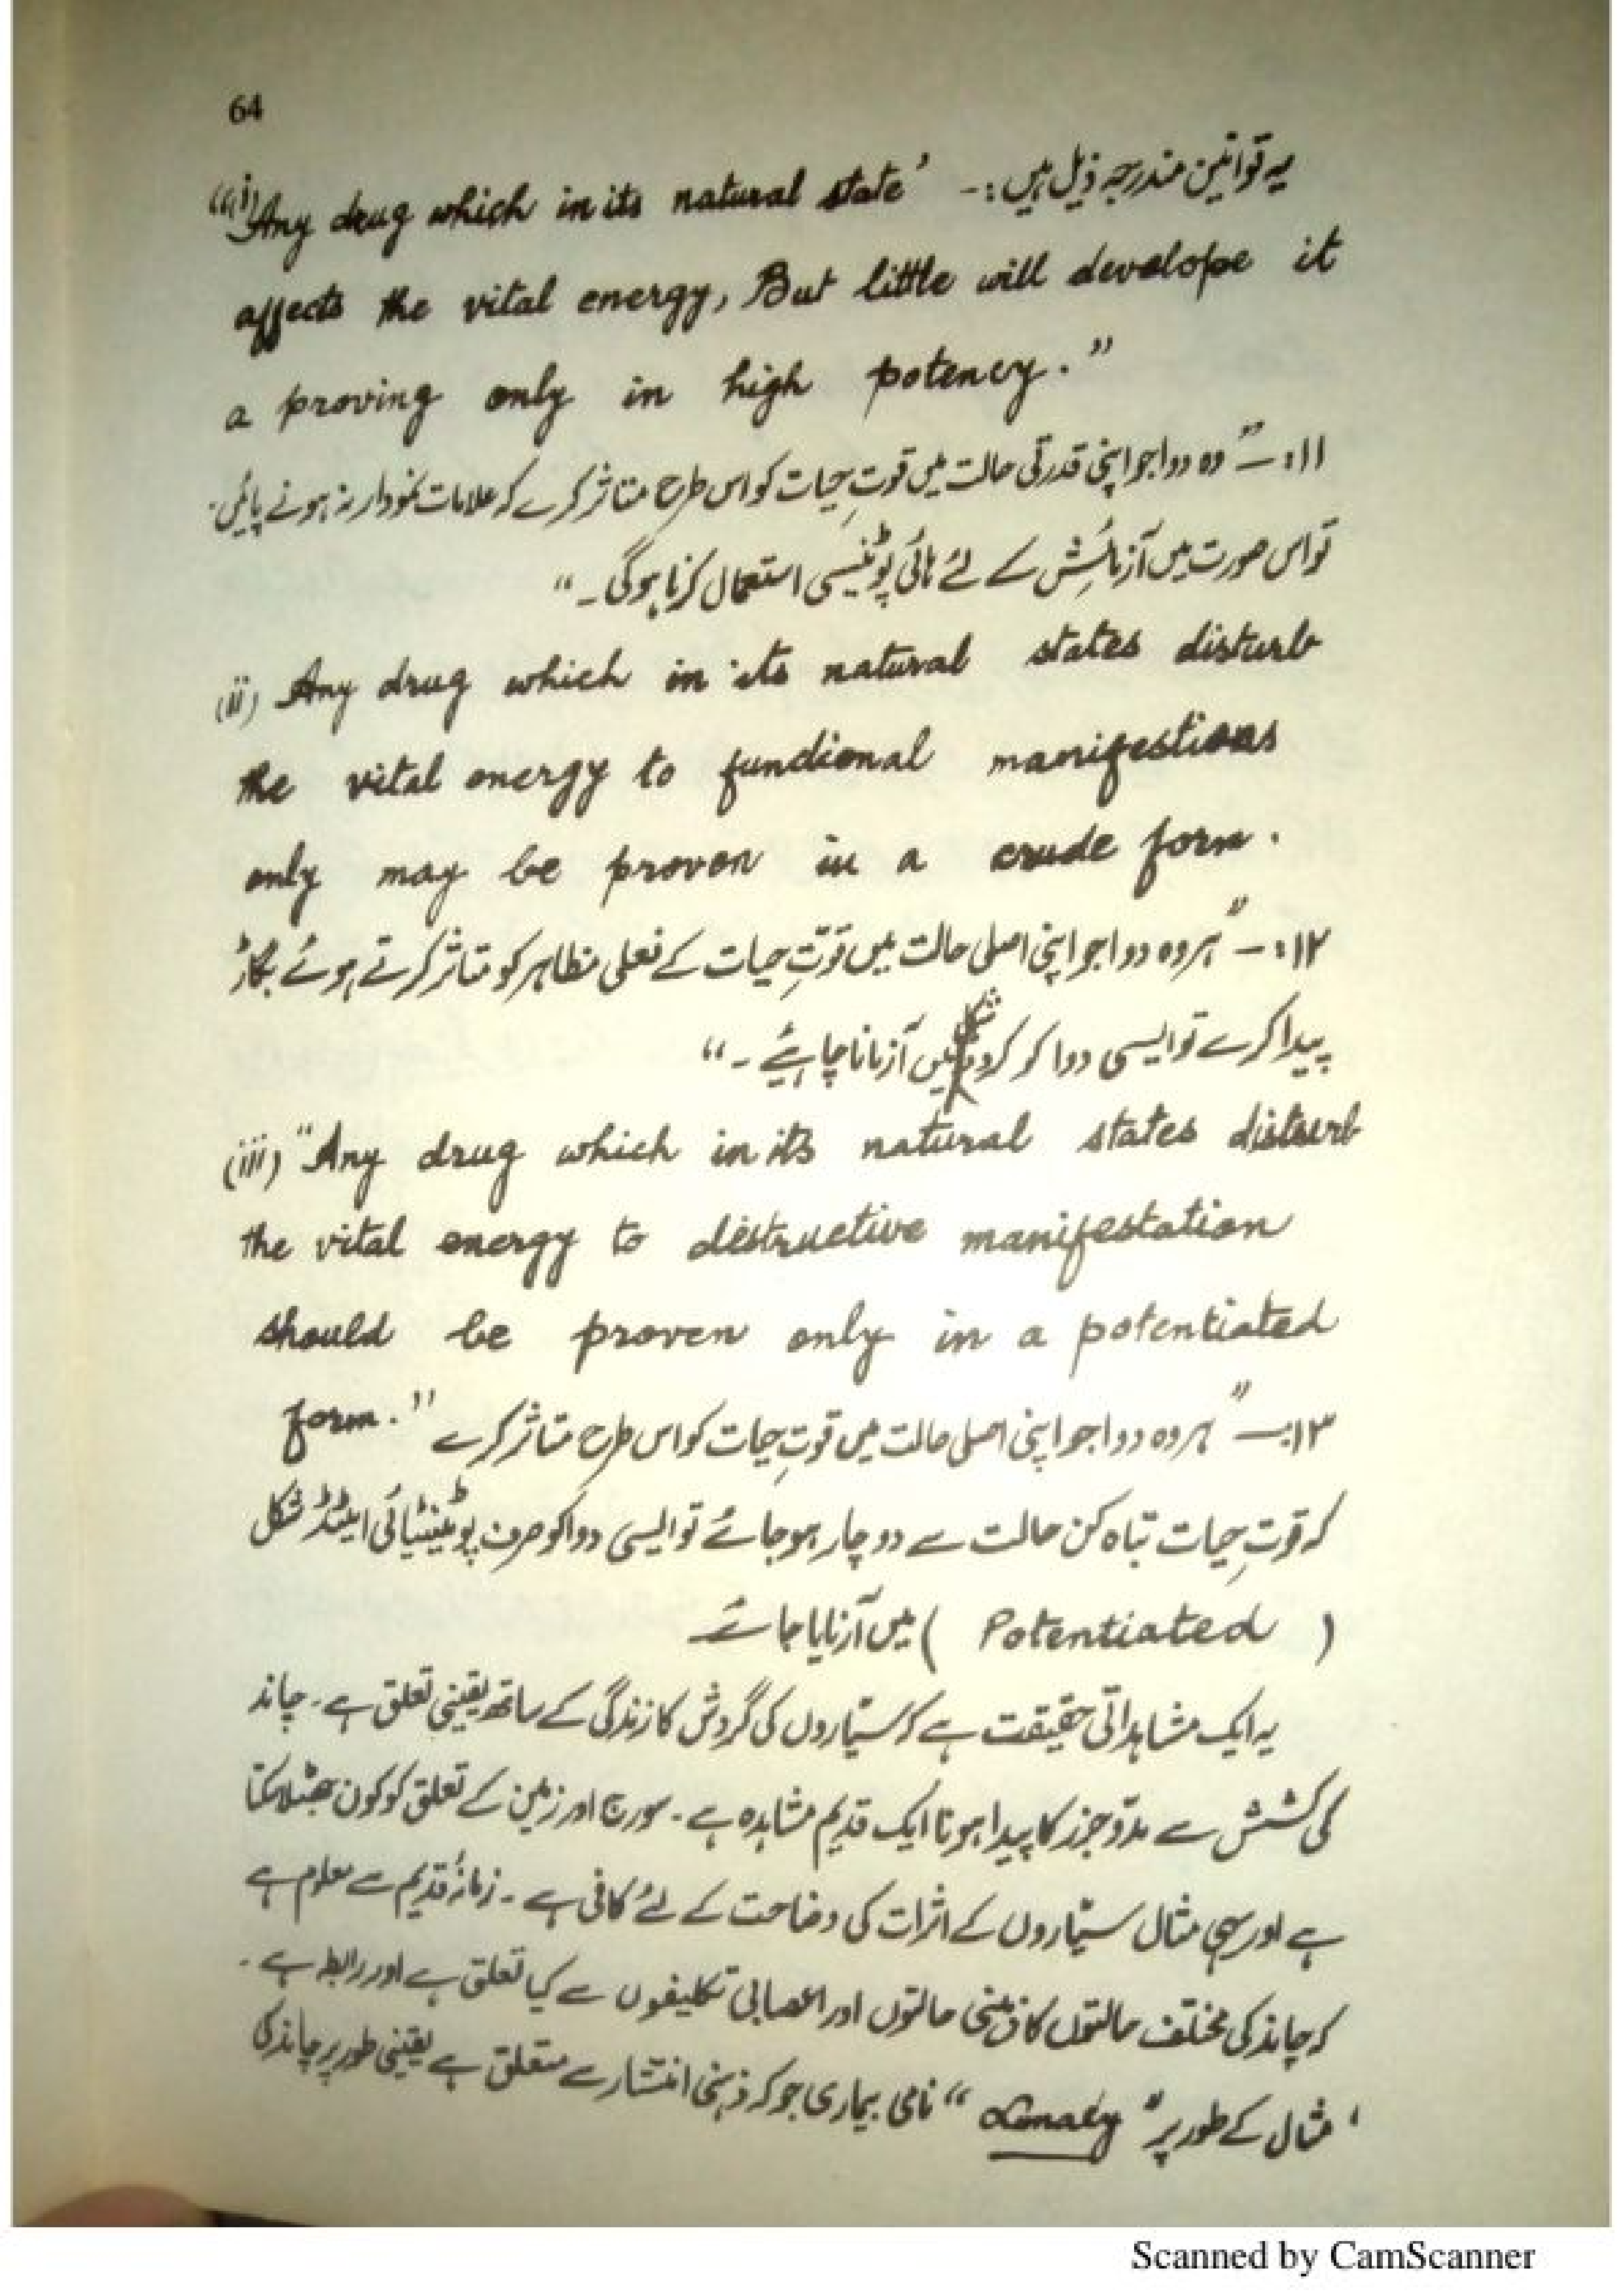 64
یہ قوانین مندرجہ ذیل ہیں :-
(i) "Any drug which in its natural state'
affects the vital energy, But little will develope it
a proving only in high potency."
۱۱:- "وہ دوا جو اپنی قدرتی حالت میں قوتِ حیات کو اس طرح متاثر کرے کہ علامات نمودار نہ ہونے پائیں۔
تو اس صورت میں آزمائش کے لئے ہائی پوٹینسی استعمال کرنا ہوگی۔"
(ii) Any drug which in its natural states disturb
the vital energy to fundional manifestions
only may be proven in a crude form.
۱۲:- "ہر وہ دوا جو اپنی اصلی حالت میں قوّتِ حیات کے فعلی مظاہر کو متاثر کرتے ہوئے بگاڑ
پیدا کرے تو ایسی دوا کو کروڈ شکل میں آزمانا چاہیئے۔"
(iii) "Any drug which in its natural states disturb
the vital energy to destructive manifestation
should be proven only in a potentiated
form."
۱۳:- "ہر وہ دوا جو اپنی اصلی حالت میں قوتِ حیات کو اس طرح متاثر کرے
کہ قوتِ حیات تباہ کن حالت سے دوچار ہو جائے تو ایسی دوا کو صرف پوٹینٹیائی ایٹڈ شکل
( Potentiated ) میں آزمایا جائے
یہ ایک مشاہداتی حقیقت ہے کہ سیّاروں کی گردش کا زندگی کے ساتھ یقینی تعلق ہے۔ چاند
کی کشش سے مدّوجزر کا پیدا ہونا ایک قدیم مشاہدہ ہے۔ سورج اور زمین کے تعلق کو کون جھٹلا سکتا
ہے اور یہی مثال سیّاروں کے اثرات کی وضاحت کے لئے کافی ہے۔ زمانۂ قدیم سے معلوم ہے
کہ چاند کی مختلف حالتوں کا ذہنی حالتوں اور اعصابی تکلیفوں سے کیا تعلق ہے اور رابطہ ہے۔
مثال کے طور پر " Lunacy " نامی بیماری جو کہ ذہنی انتشار سے متعلق ہے یقینی طور پر چاند کی
Scanned by CamScanner